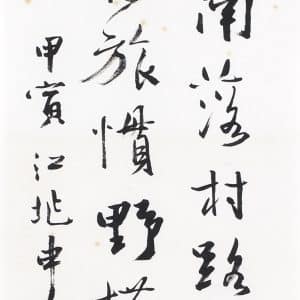 南落村路
旅慣野
甲寅江兆申